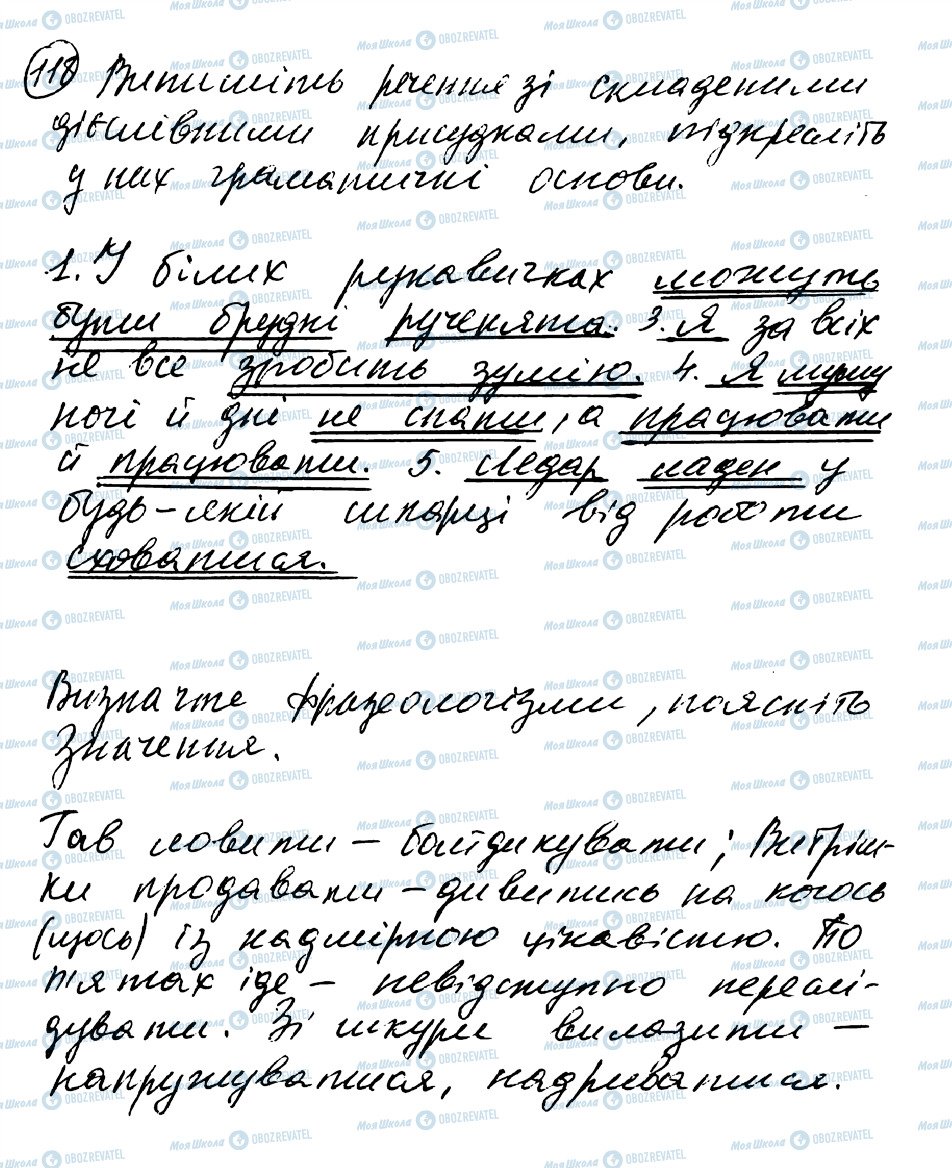 118 Випишіть речення зі складеними
дієслівними присудками, підкресліть
у них граматичні основи.
1. У білих рукавичках можуть
бути брудні рученята. 3. Я за всіх
не все зробить зумію. 4. Я мушу
ночі й дні не спати, а працювати
й працювати. 5. Ледар ладен у
будь-якій шпарці від роботи
сховатися.
Визначте фразеологізми, поясніть
значення.
Гав ловити – байдикувати; Витріш-
ки продавати – дивитись на когось
(щось) із надмірною цікавістю. По
п'ятах іде – невідступно переслі-
дувати. Зі шкури вилазити –
напружуватися, надриватися.